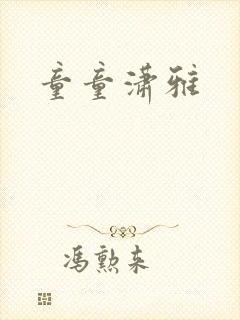 童童潇雅
冯勲来